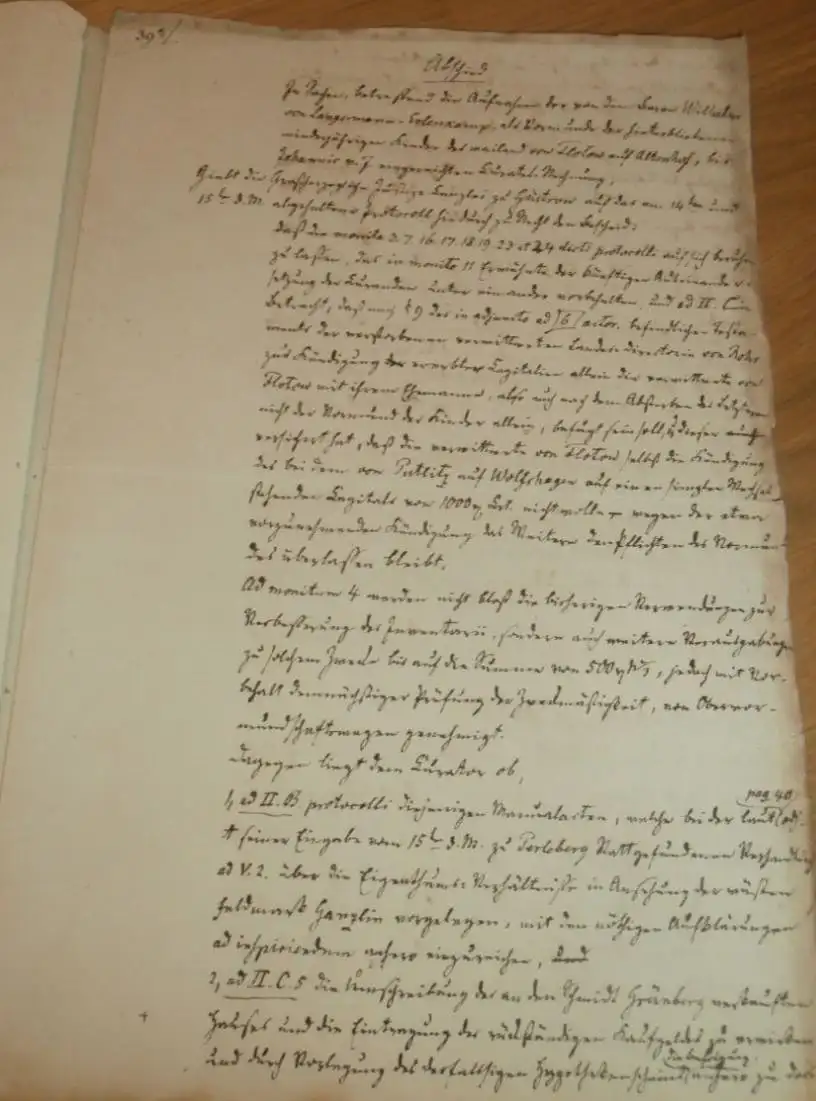 39 2/
Abschied
In Sachen, betreffend die Aufnahme der von dem Baron Wilhelm
von Langermann-Erlenkamp, als Vormunde der hinterbliebenen
minderjährigen Kinder des weiland von Flotow auf Altenhof, bis
Johannis v. J. eingereichten Curatel-Rechnung,
Giebt die Großherzogliche Justiz-Canzlei zu Güstrow auf das am 14ten und
15ten d. M. abgehaltene Protocoll hiedurch zu Recht den Bescheid:
daß die monita 3. 7. 16. 17. 18. 19. 23 et 24 dicti protocolli auf sich beruhen
zu lassen, das in monito 11 Erwähnte der künftigen Auseinander-
setzung der Curanden unter einander vorbehalten, und ad II. C in
Betracht, daß nach § 9 des in adjuncto ad [6] actor. befindlichen Testa-
ments der verstorbenen verwittweten Landes-Directorin von Rohr
zur Kündigung der ererbten Capitalien allein die verwittwete von
Flotow mit ihrem Ehemanne, also auch nach dem Absterben des Letzteren
nicht der Vormund der Kinder allein, befugt sein soll, dieser auch
versichert hat, daß die verwittwete von Flotow selbst die Kündigung
des bei dem von Putlitz auf Wolfshagen auf einen simplen Wechsel
stehenden Capitals von 1000 Crt. nicht wolle wegen der etwa
vorzunehmenden Kündigung das Weitere den Pflichten des Vormun-
des überlassen bleibt.
Ad monitum 4 werden nicht bloß die bisherigen Verwendungen zur
Verbesserung des Inventarii, sondern auch weitere Verausgabungen
zu solchem Zwecke bis auf die Summe von 500, jedoch mit Vor-
behalt demnächstiger Prüfung der Zweckmäßigkeit, von Obervor-
mundschaftswegen genehmigt.
Dagegen liegt dem Curator ob,
pag. 40
1, ad II. B protocolli diejenigen Manualacten, welche bei der laut [adj.
seiner Eingabe vom 15ten d. M. zu Perleberg Statt gefundenen Verhandlung
ad V. 2. über die Eigenthums-Verhältnisse in Ansehung der wüsten
Feldmark Ganzlin vorgelegen, mit den nöthigen Aufklärungen
ad inspiciendum anhero einzureichen, und
2, ad II. C. 5 die Umschreibung des an den Schmidt Grünberg verkauften
Hauses und die Eintragung der rückständigen Kaufgelder zu erwirken
und durch Vorlegung des desfallsigen Hypothekenscheins anhero zu